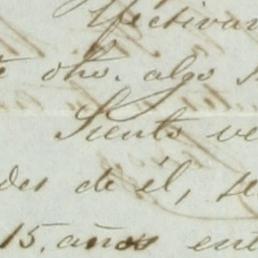 Efectivam
te dho. algo
Siento ve
des de él, se
15. años ent